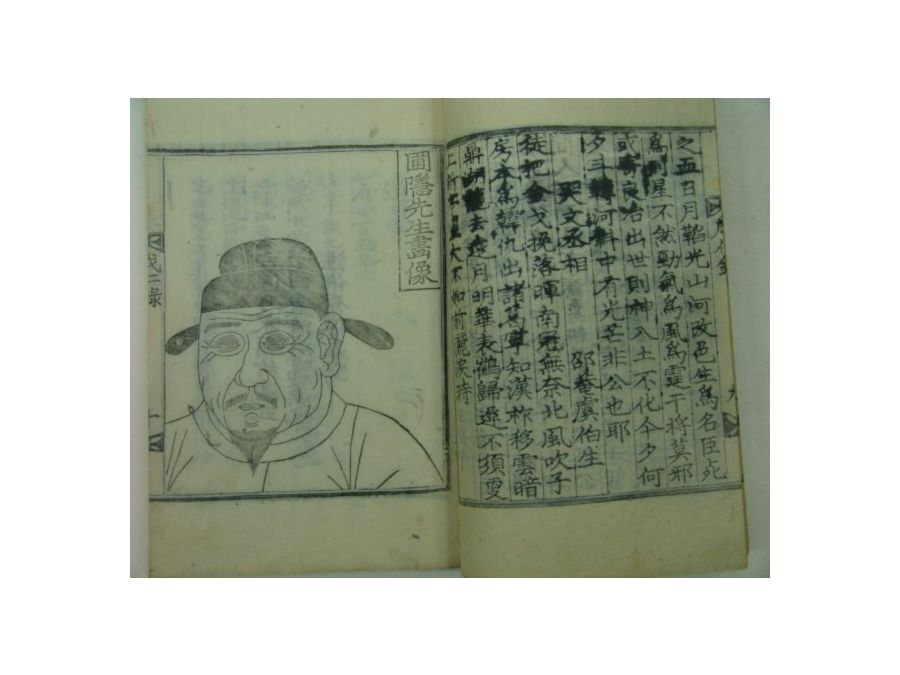 之日月韜光山河改色生爲名臣死
爲列星不然勁氣爲風爲霆干將莫邪
或寄良冶出世則神入土不化今夕何
夕斗轉河斜中有光芒非公也耶
哭文丞相 邵菴虞伯生
徒把金戈挽落暉南冠無奈北風吹子
房本爲韓仇出諸葛寧知漢祚移雲暗
鼎湖龍去遠月明華表鶴歸遲不須更
上新亭望大不如前灑淚時
圃隱先生畫像
成仁錄